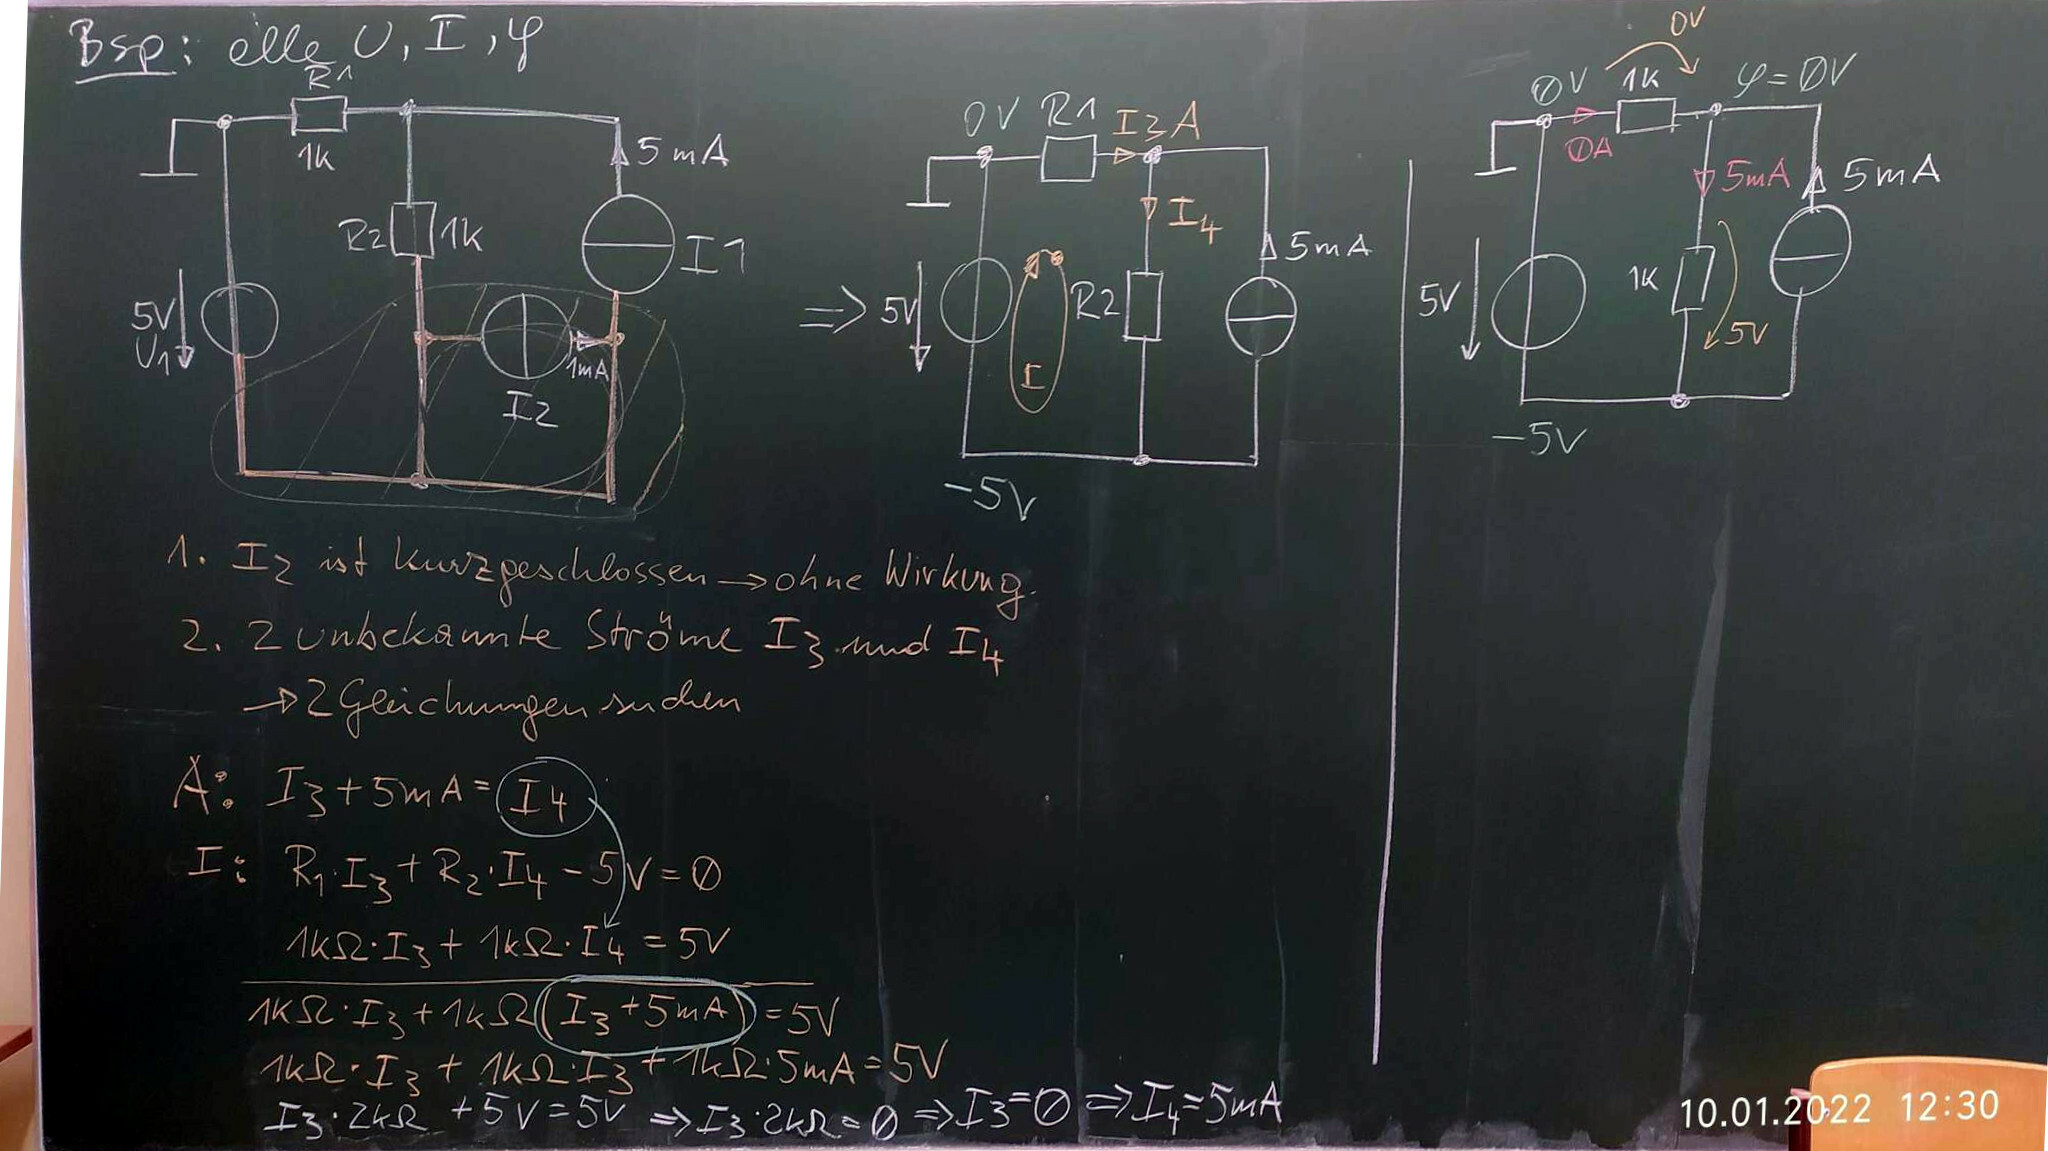 Bsp: alle U, I, φ
R1
1k
5mA
R2 1k
I1
5V
U1
1mA
I2
0V R1 I3 A
I4
5mA
⇒ 5V
R2
I
-5V
0V
∅V 1k φ=∅V
∅A
5mA 5mA
5V
1k
5V
-5V
1. I2 ist kurzgeschlossen → ohne Wirkung.
2. 2 unbekannte Ströme I3 und I4
→ 2 Gleichungen suchen
A: I3 + 5mA = I4
I: R1·I3 + R2·I4 - 5V = ∅
1kΩ·I3 + 1kΩ·I4 = 5V
1kΩ·I3 + 1kΩ(I3 + 5mA) = 5V
1kΩ·I3 + 1kΩ·I3 + 1kΩ·5mA = 5V
I3·2kΩ + 5V = 5V ⇒ I3·2kΩ = ∅ ⇒ I3 = ∅ ⇒ I4 = 5mA
10.01.2022 12:30